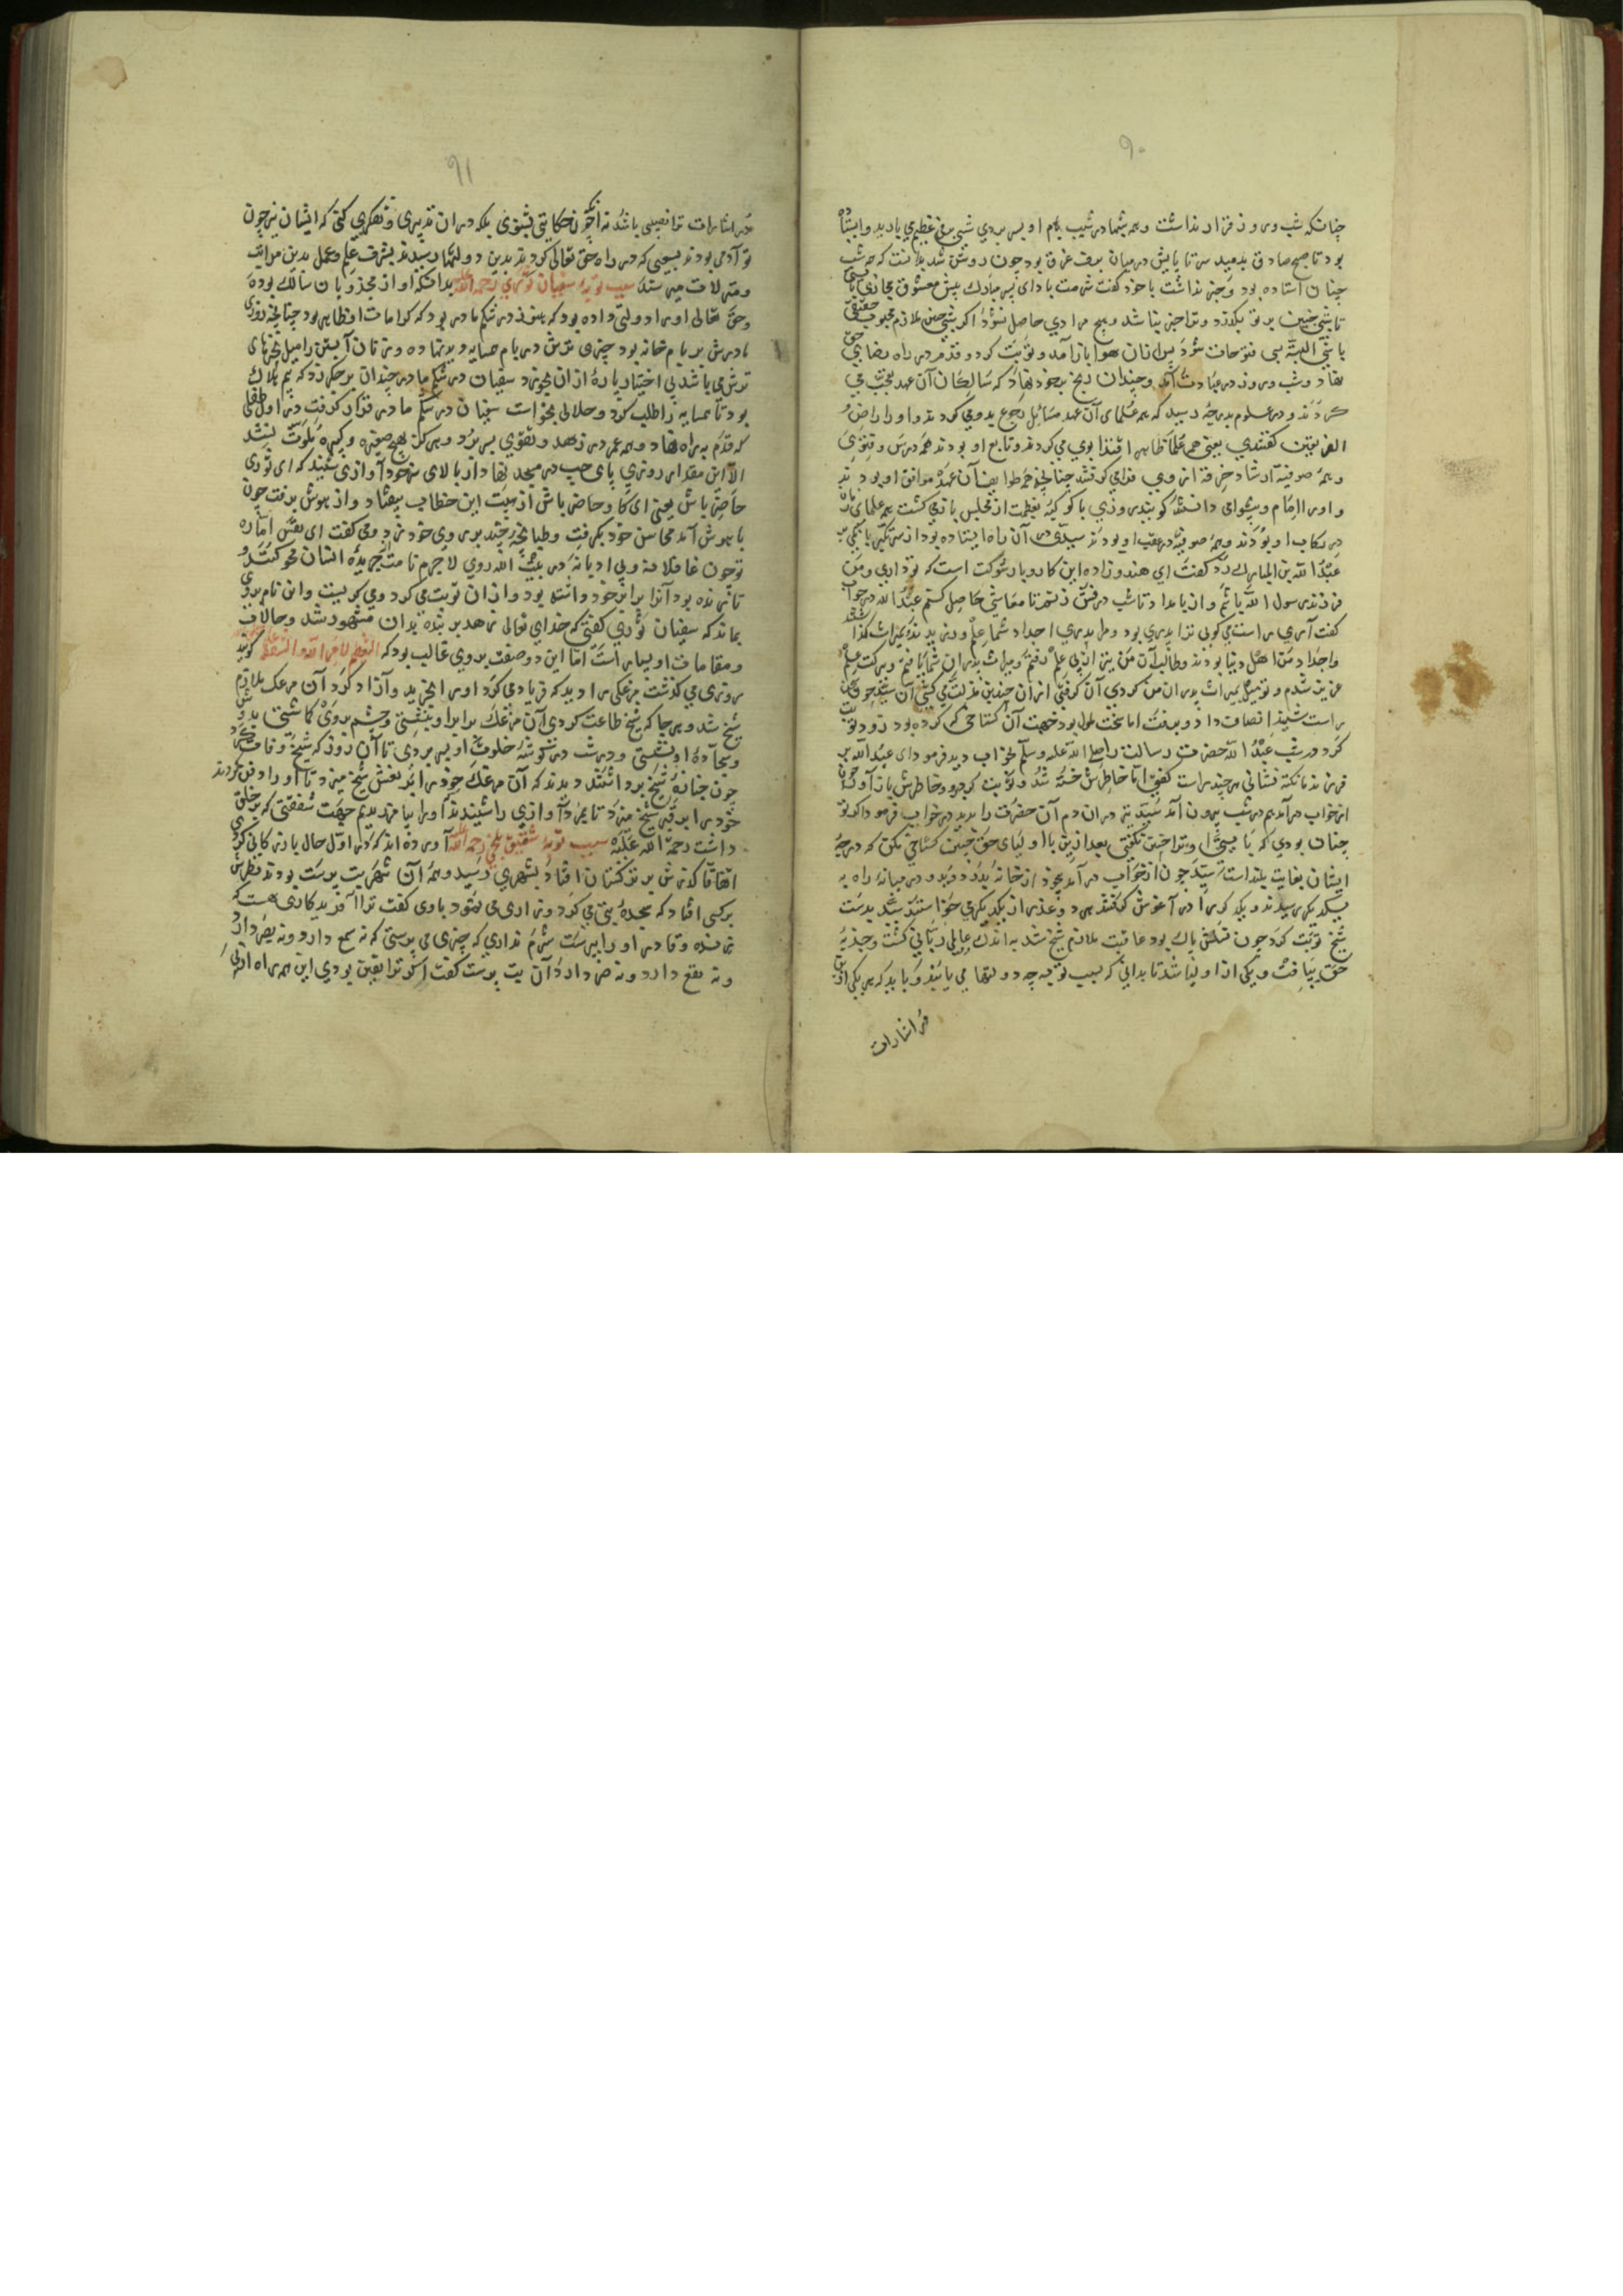 ۹۰
چنانکه شب و روز قرار نداشت و همه شبها در شیب بام او بسر بردی شبی برفی عظیم می بارید و ایستاده
بود تا صبح صادق بدمید سر تا پایش در میان برف غرق بود چون روشن شد بدانست که همه شب
چنان استاده بود و خبر نداشت با خود گفت شرمت باد ای پسر مبارک پیش معشوق مجازی
تا شبی چنین بر تو بگذرد و ترا خبر نباشد و هیچ مرادی حاصل نشود اگر شبی چنین ملازم محبوب حقیقی
باشی البته بسی فتوحات شود پس از آن هوا باز آمد و توبت کرد و قدم در راه رضای حق
نهاد و شب و روز در عبادت آمد و چندان رنج بر خود نهاد که سالکان آن عهد تعجب می
کردند و در علوم بدرجه رسید که همه علمای آن عهد مسائل رجوع بدو می کردند و او را راضی
الفریقین گفتندی یعنی همه علما ظاهر اقتدا بوی می کردند و تابع او بودند همه درس و فتوی
و همه صوفیه ارشاد خرقه از وی فرا می گرفتند چنانچه همه طوایف آن عهد موافق او بودند
و او را امام و پیشوای دانستند گویند روزی با کوکبه بعظمت از مجلس باز می گشت همه علمای
در رکاب او بودند و همه صوفیه در عقب او بودند سیدی در آن راه ایستاده بود از سر تکبر بانگی بر
عبد الله بن المبارک زد گفت ای هندو زاده این کار و بار شوکت است که تو داری و من
فرزند رسول الله باشم و از بامداد تا شب درفش زنم تا معاشی حاصل کنم عبد الله در جواب
گفت آری راست می گوئی ترا پدری بود و مرا پدری اجداد شما علم و زهد بمیراث گذاشتند
و اجداد من اهل دنیا بودند و طالب آن من بترک آن علم رفتم و میراث پدران شما یافتم و ببرکت علم
عزیز شدم و تو میل بمیراث پدران من کردی آن گرفتی از آن چندین مذلت می کشی آن سید چون سخن
راست شنید انصاف داد و برفت اما سخت ملول بود جهت آن گستاخی که کرده بود زود توبت
کرد در شب عبد الله حضرت رسالت را صلی الله علیه وسلم بخواب دید فرمود ای عبد الله بر
فرزند ما نکته فشانی هر چند راست گفتی اما خاطرش خسته شد و توبت کرد برو و خاطرش باز آور چون
از خواب در آمد هم در شب بیرون آمد سید نیز در آن دم آن حضرت را دید در خواب فرمود اگر تو
چنان بودی که با یستی او ترا چنین نگفتی بعد ازین با اولیای حق چنین گستاخی نکن که درجه
ایشان بغایت بلند است سید چون از خواب در آمد بیخود از خانه بدر دوید و در میانه راه به
یکدیگر رسیدند و یکدیگر را در آغوش گرفتند و عذر از یکدیگر می خواستند سید بدست
شیخ توبت کرد چون فلکش پاک بود عاقبت ملازم شیخ شد به اندک عالمی ربانی گشت و جذبه
حق بیافت و یکی از اولیا شد تا بدانی که بسبب توبه چه دولتها می یابند و باید که هر یکی ازین
در اشارات
۹۱
در اشارات ترا نصیبی باشد نه آنکه چون حکایتی بشنوی بلکه در آن تدبری و تفکری کنی که ایشان نیز چون
تو آدمی بودند بسعی که در راه حق تعالی کردند بدین دولتها رسیدند بشرف علم و عمل بدین مراتب
و منزلات میرسند سبب توبه سفیان ثوری رحمة الله علیه بدانکه او از مجذوبان سالک بوده
و حق تعالی او را دولتی داده بود که هنوز در شکم مادر بود که کرامات او ظاهر بود چنانچه روزی
مادرش بر بام خانه بود چیزی ترش در بام همسایه دید نهاده و زنان آبستن را میل بچیزهای
ترش می باشد بی اختیار پاره از آن بخورد سفیان در شکم مادر چندان بر جگر زد که بیم هلاک
بود تا همسایه را طلب کرد و حلالی بخواست سفیان در شکم مادر قرار گرفت در اول طفلی
که قدم براه نهاد و همه عمر در زهد و تقوی بسر برد و هرگز بهیچ صغیره و کبیره ملوث نشد
الا این مقدار روزی پای چپ در مسجد نهاد از بالای سر خود آوازی شنید که ای ثوری
حاضر باش یعنی ای گاو حاضر باش از هیبت این خطاب بیفتاد و از هوش برفت چون
با هوش آمد محاسن خود بگرفت و طپانچه چند بر روی خود زد و می گفت ای نفس اماره
تو چون غافلانه و بی ادبانه در بیت الله روی لا جرم نامت از جریده انسان محو کنند و
تا زنده بود آنرا بر این خود دانسته بود و از آن توبت می کرد و می گریست و این نام بر وی
بماند که سفیان ثوری گفتی که خدای تعالی زاهد تر بنده بدان مشهود شد و حالات
و مقامات او بسیار است اما این دو صفت بر وی غالب بود که التعظیم لامر الله و الشفقة گویند
روزی می گذشت مرغکی را دید که فریاد می کرد او را بخرید و آزاد کرد آن مرغک ملازم
شیخ شد و هر جا که شیخ طاعت کردی آن مرغک برابر او بنشستی و چشم بروی گماشتی
و سجاده او نشستی و در شب در گوشه خلوت او بسر بردی تا آن روز که شیخ وفات کرد
چون جنازه شیخ برداشتند دیدند که آن مرغک خود را بر نعش شیخ میزد تا او را دفن کردند
خود را بر قبر شیخ میزد تا بمرد آوازی را شنیدند او را بیامرزیدیم جهت شفقتی که بر خلق
داشت رحمة الله علیه سبب توبه شقیق بلخی رحمة الله علیه آورده اند که در اول حال بازرگانی کردی
اتفاقا گذرش بر ترکستان افتاد بشهری رسید و همه آن شهر بت پرست بودند نظرش
بر کسی افتاد که سجده بتی می کرد و زاری می نمود باوی گفت ترا آفریدگاری هست که
زنده و قادر او را بپرست شرم نداری که چیزی می پرستی که نه سمع دارد و نه بصر دارد
و نه نفع دارد و نه ضر دارد آن بت پرست گفت اگر ترا یقین بودی این همه راه از پی